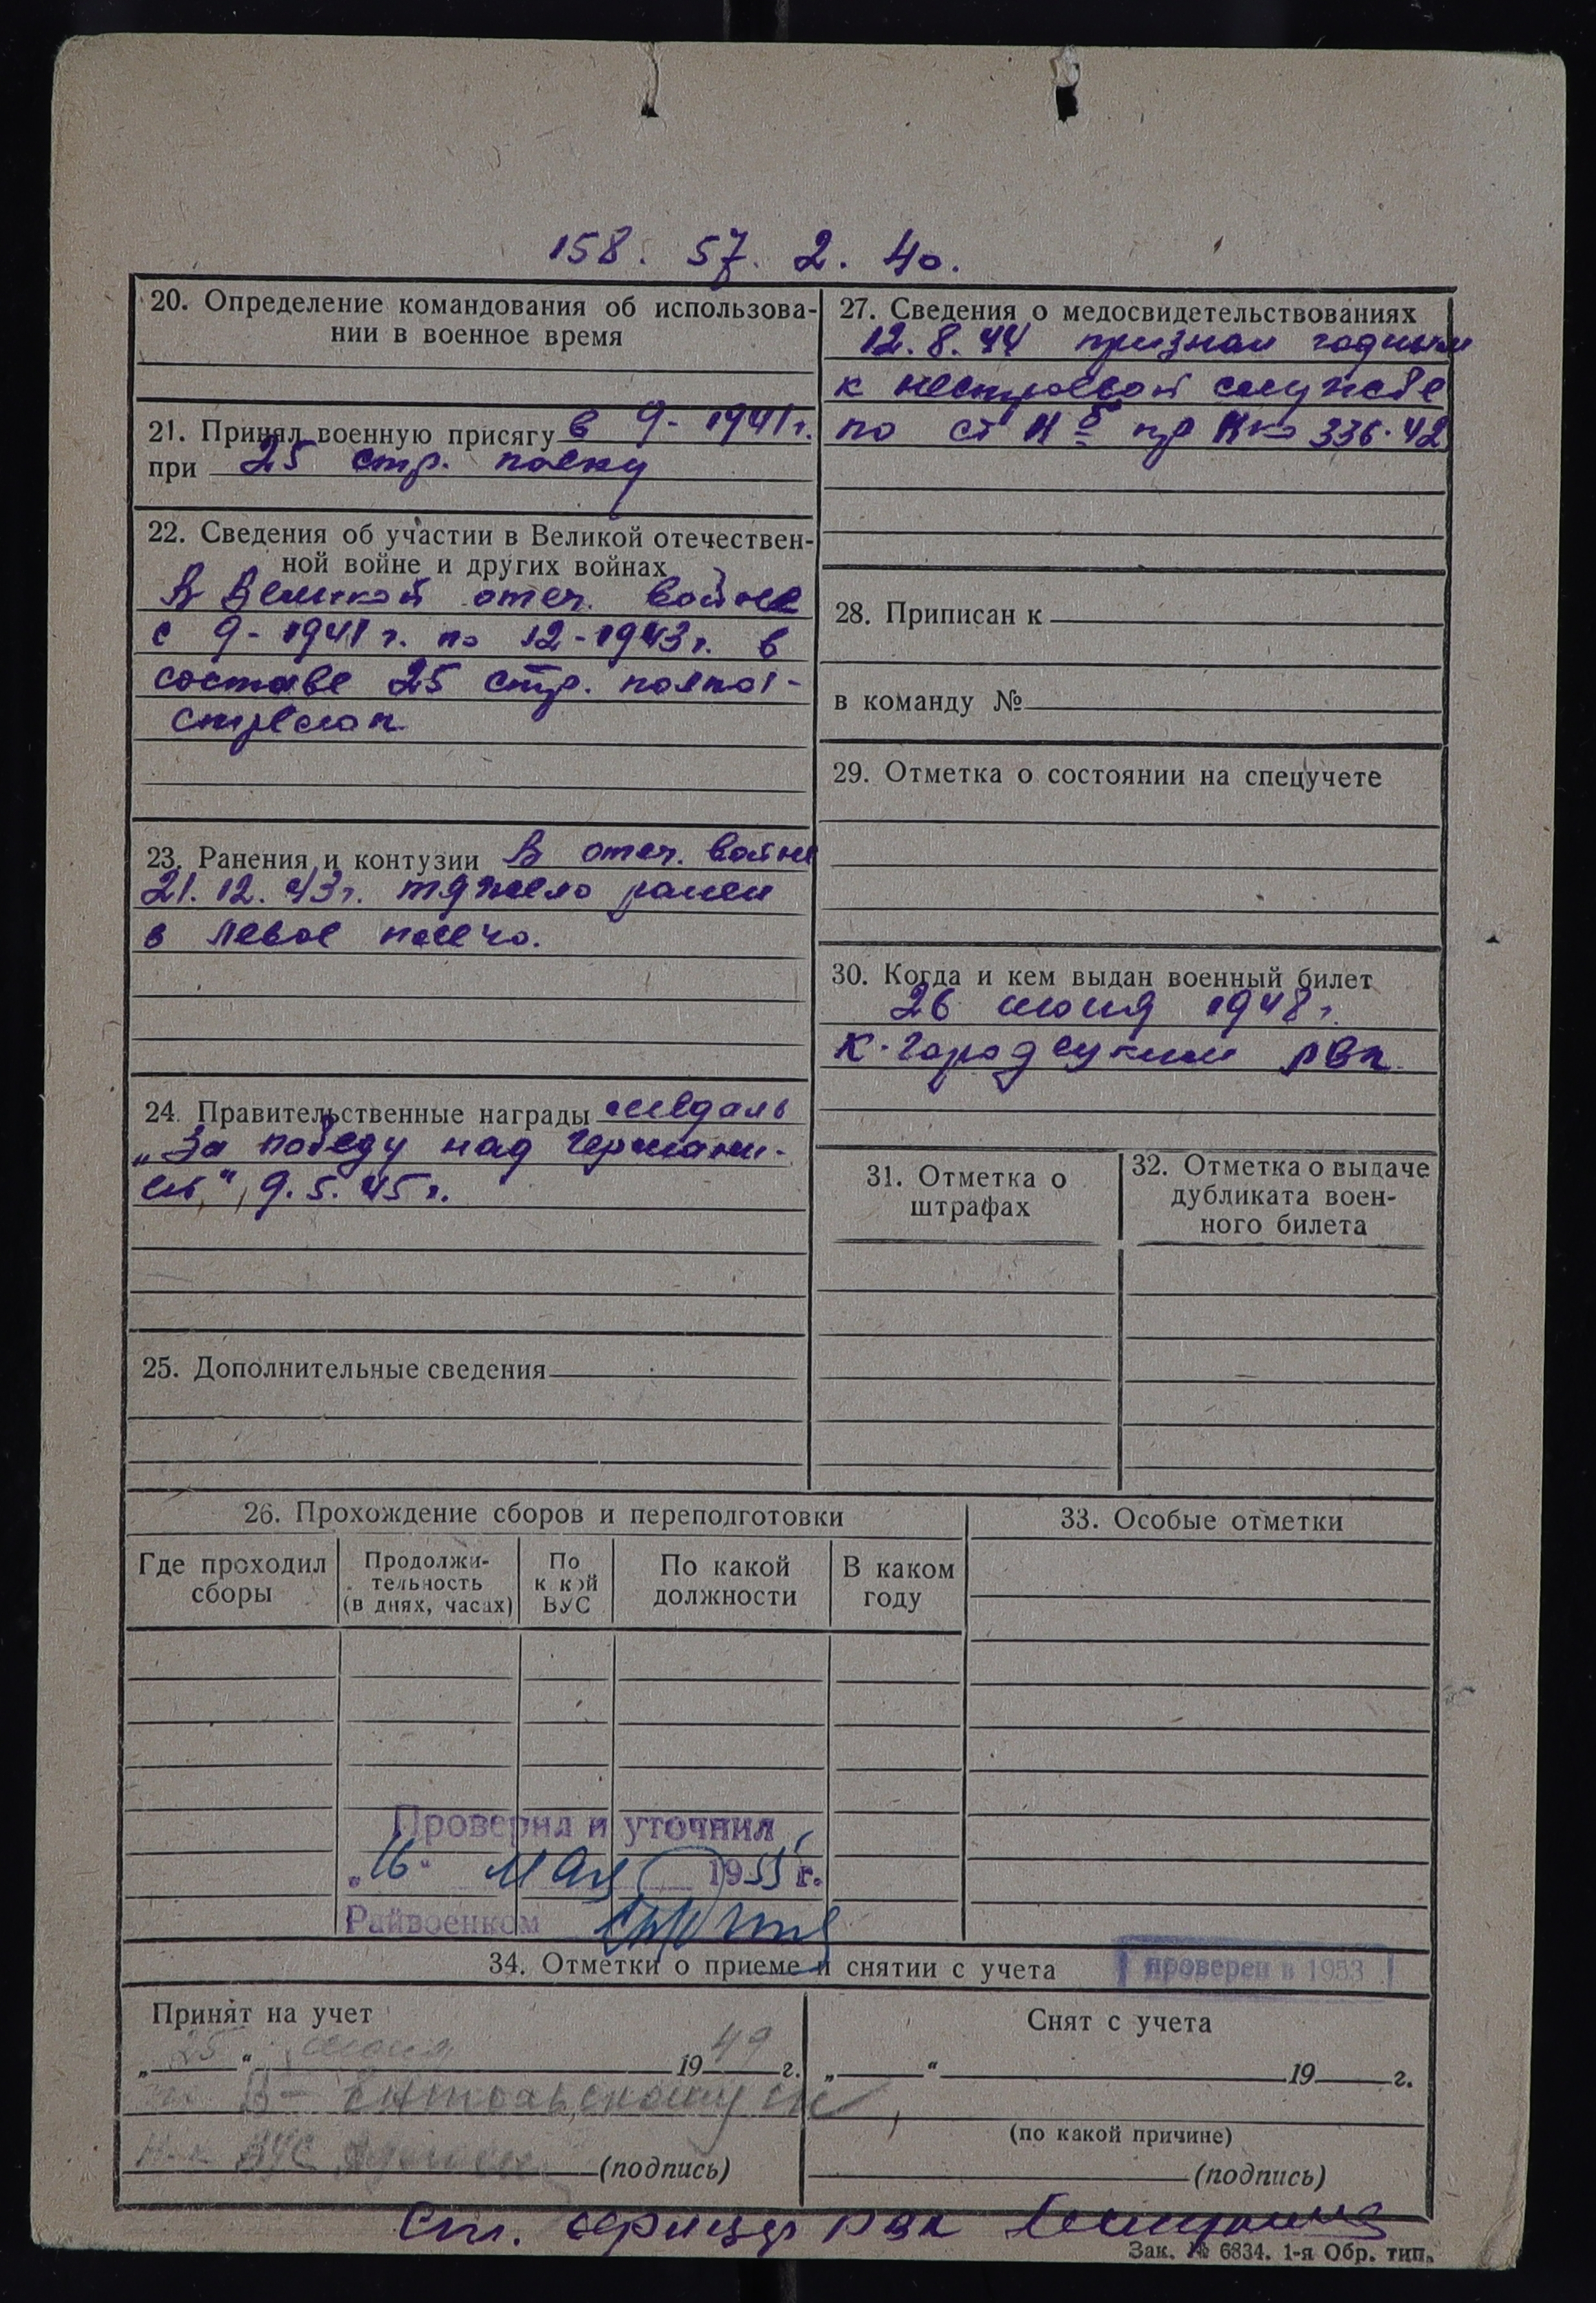 158. 57. 2. 40.
20. Определение командования об использова-
нии в военное время
21. Принял военную присягу в 9-1941г.
при 25 стр. полку
22. Сведения об участии в Великой отечествен-
ной войне и других войнах
В Великой отеч. войне
с 9-1941г. по 12-1943г. в
составе 25 стр. полка -
стрелок
23. Ранения и контузии В отеч. войне
21.12.43г. тяжело ранен
в левое плечо.
24. Правительственные награды медаль
„За победу над Германи-
ей", 9.5.45г.
25. Дополнительные сведения
27. Сведения о медосвидетельствованиях
12.8.44 признан годным
к нестроевой службе
по ст пр Нко 336-42
28. Приписан к
в команду №
29. Отметка о состоянии на спецучете
30. Когда и кем выдан военный билет
26 июня 1948г.
К-Городецким РВК
31. Отметка о
штрафах
32. Отметка о выдаче
дубликата воен-
ного билета
26. Прохождение сборов и переподготовки
Где проходил
сборы
Продолжи-
тельность
(в днях, часах)
По
какой
ВУС
По какой
должности
В каком
году
33. Особые отметки
Проверил и уточнил
„16" мая 1955 г.
Райвоенком
34. Отметки о приеме и снятии с учета
проверен в 1953
Принят на учет
„25" 1949 г.
(подпись)
Снят с учета
„ " 19 г.
(по какой причине)
(подпись)
РВК
Зак. № 6834. 1-я Обр. тип.